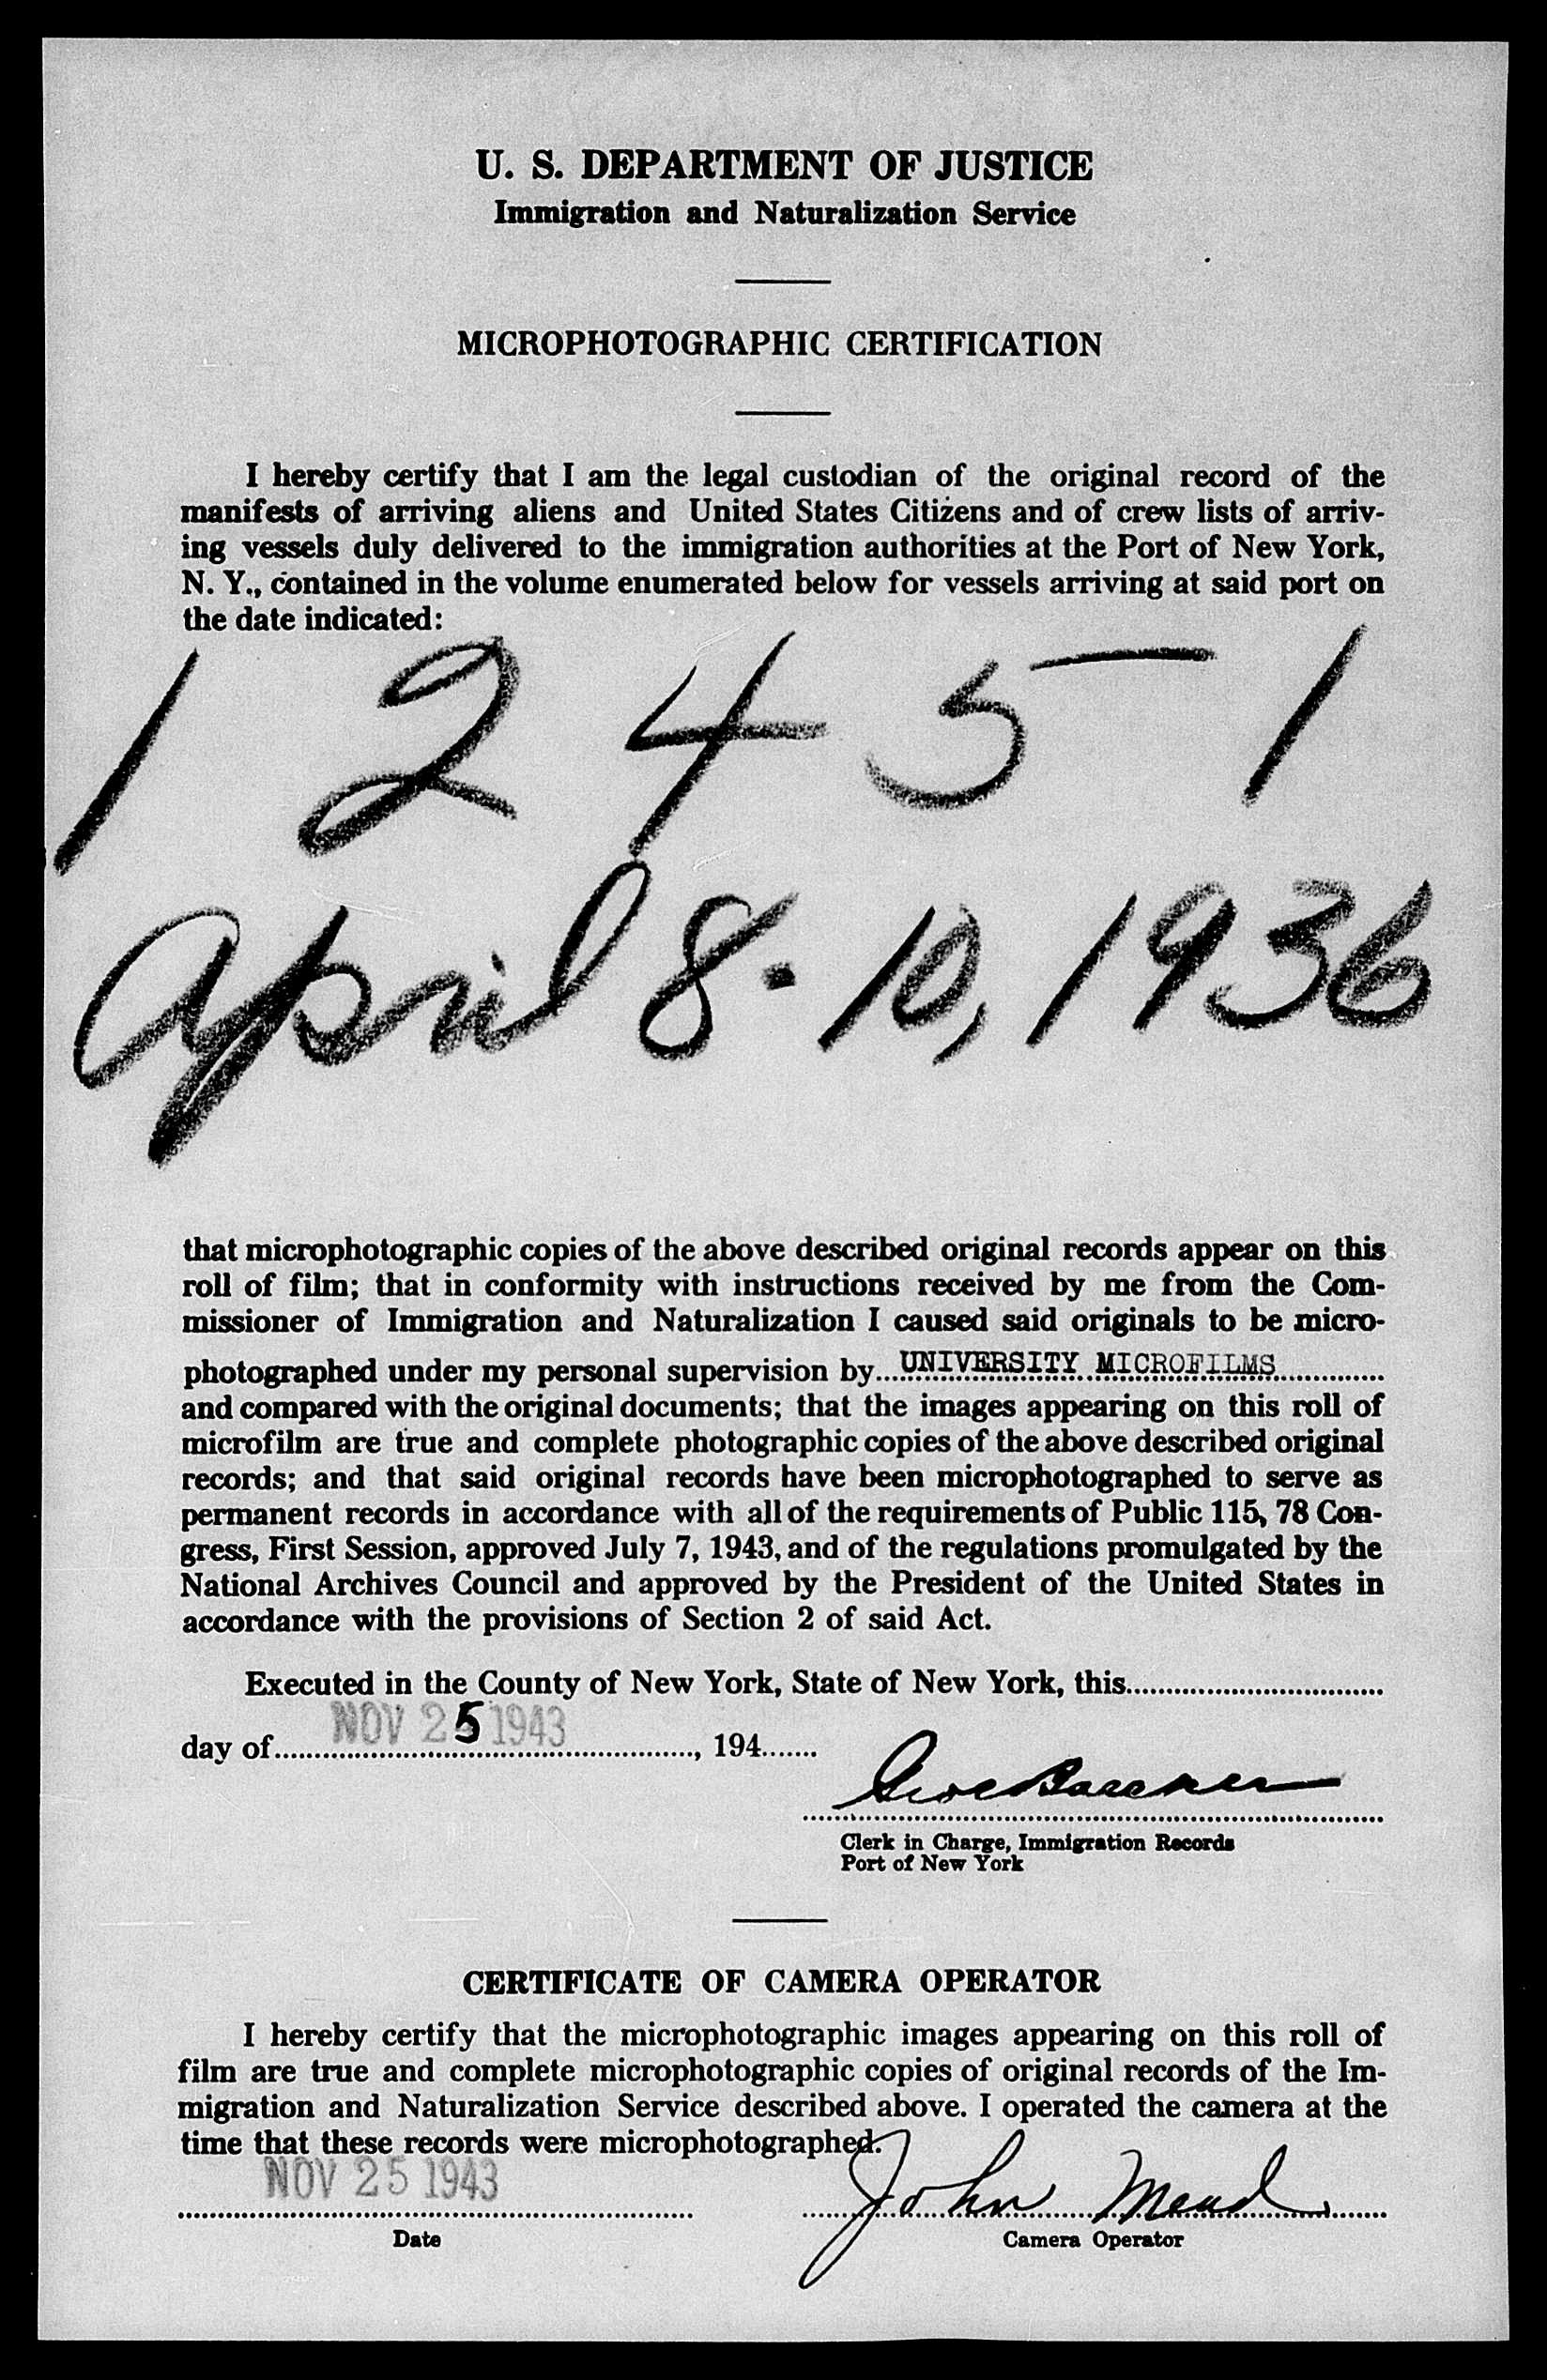 U. S. DEPARTMENT OF JUSTICE
Immigration and Naturalization Service
MICROPHOTOGRAPHIC CERTIFICATION
I hereby certify that I am the legal custodian of the original record of the
manifests of arriving aliens and United States Citizens and of crew lists of arriv-
ing vessels duly delivered to the immigration authorities at the Port of New York,
N. Y., contained in the volume enumerated below for vessels arriving at said port on
the date indicated:
1 2 4 5 1
April 8 - 10, 1936
that microphotographic copies of the above described original records appear on this
roll of film; that in conformity with instructions received by me from the Com-
missioner of Immigration and Naturalization I caused said originals to be micro-
photographed under my personal supervision by UNIVERSITY MICROFILMS
and compared with the original documents; that the images appearing on this roll of
microfilm are true and complete photographic copies of the above described original
records; and that said original records have been microphotographed to serve as
permanent records in accordance with all of the requirements of Public 115, 78 Con-
gress, First Session, approved July 7, 1943, and of the regulations promulgated by the
National Archives Council and approved by the President of the United States in
accordance with the provisions of Section 2 of said Act.
Executed in the County of New York, State of New York, this
NOV 25 1943
day of , 194
Clerk in Charge, Immigration Records
Port of New York
CERTIFICATE OF CAMERA OPERATOR
I hereby certify that the microphotographic images appearing on this roll of
film are true and complete microphotographic copies of original records of the Im-
migration and Naturalization Service described above. I operated the camera at the
time that these records were microphotographed.
NOV 25 1943
John Mead
Date
Camera Operator